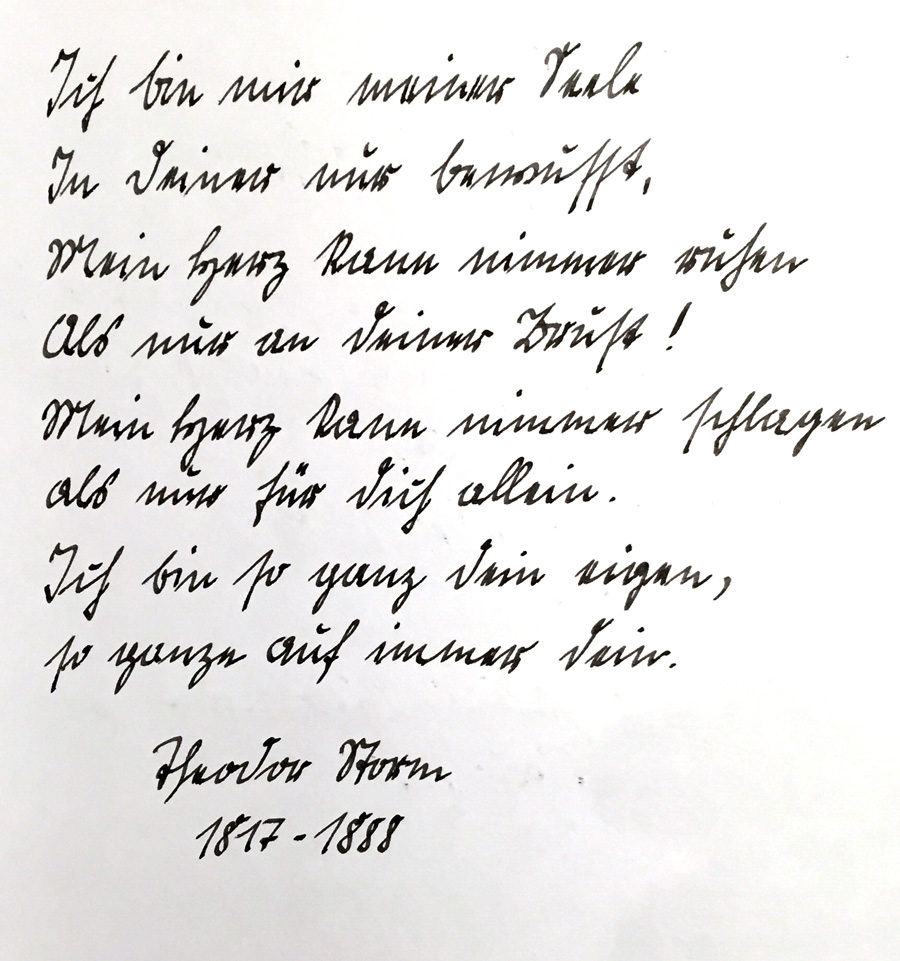 Ich bin mir meiner Seele
In deiner nur bewusst,
Mein Herz kann nimmer ruhen
Als nur an deiner Brust!
Mein Herz kann nimmer schlagen
als nur für dich allein.
Ich bin so ganz dein eigen,
so ganze auf immer dein.
Theodor Storm
1817-1888